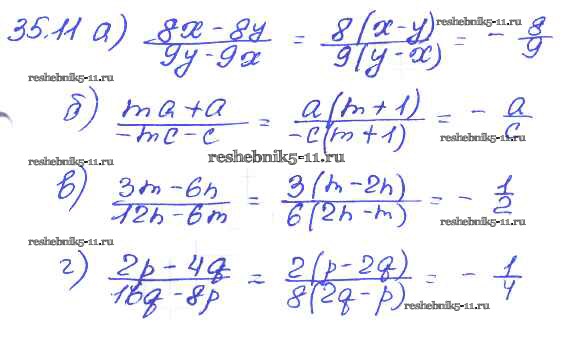 35.11 а) (8x - 8y)/(9y - 9x) = 8(x - y)/9(y - x) = - 8/9
reshebnik5-11.ru
reshebnik5-11.ru
б) (ma + a)/(-mc - c) = a(m + 1)/-c(m + 1) = - a/c
reshebnik5-11.ru
reshebnik5-11.ru
в) (3m - 6n)/(12n - 6m) = 3(m - 2n)/6(2n - m) = - 1/2
reshebnik5-11.ru
г) (2p - 4q)/(16q - 8p) = 2(p - 2q)/8(2q - p) = - 1/4
reshebnik5-11.ru